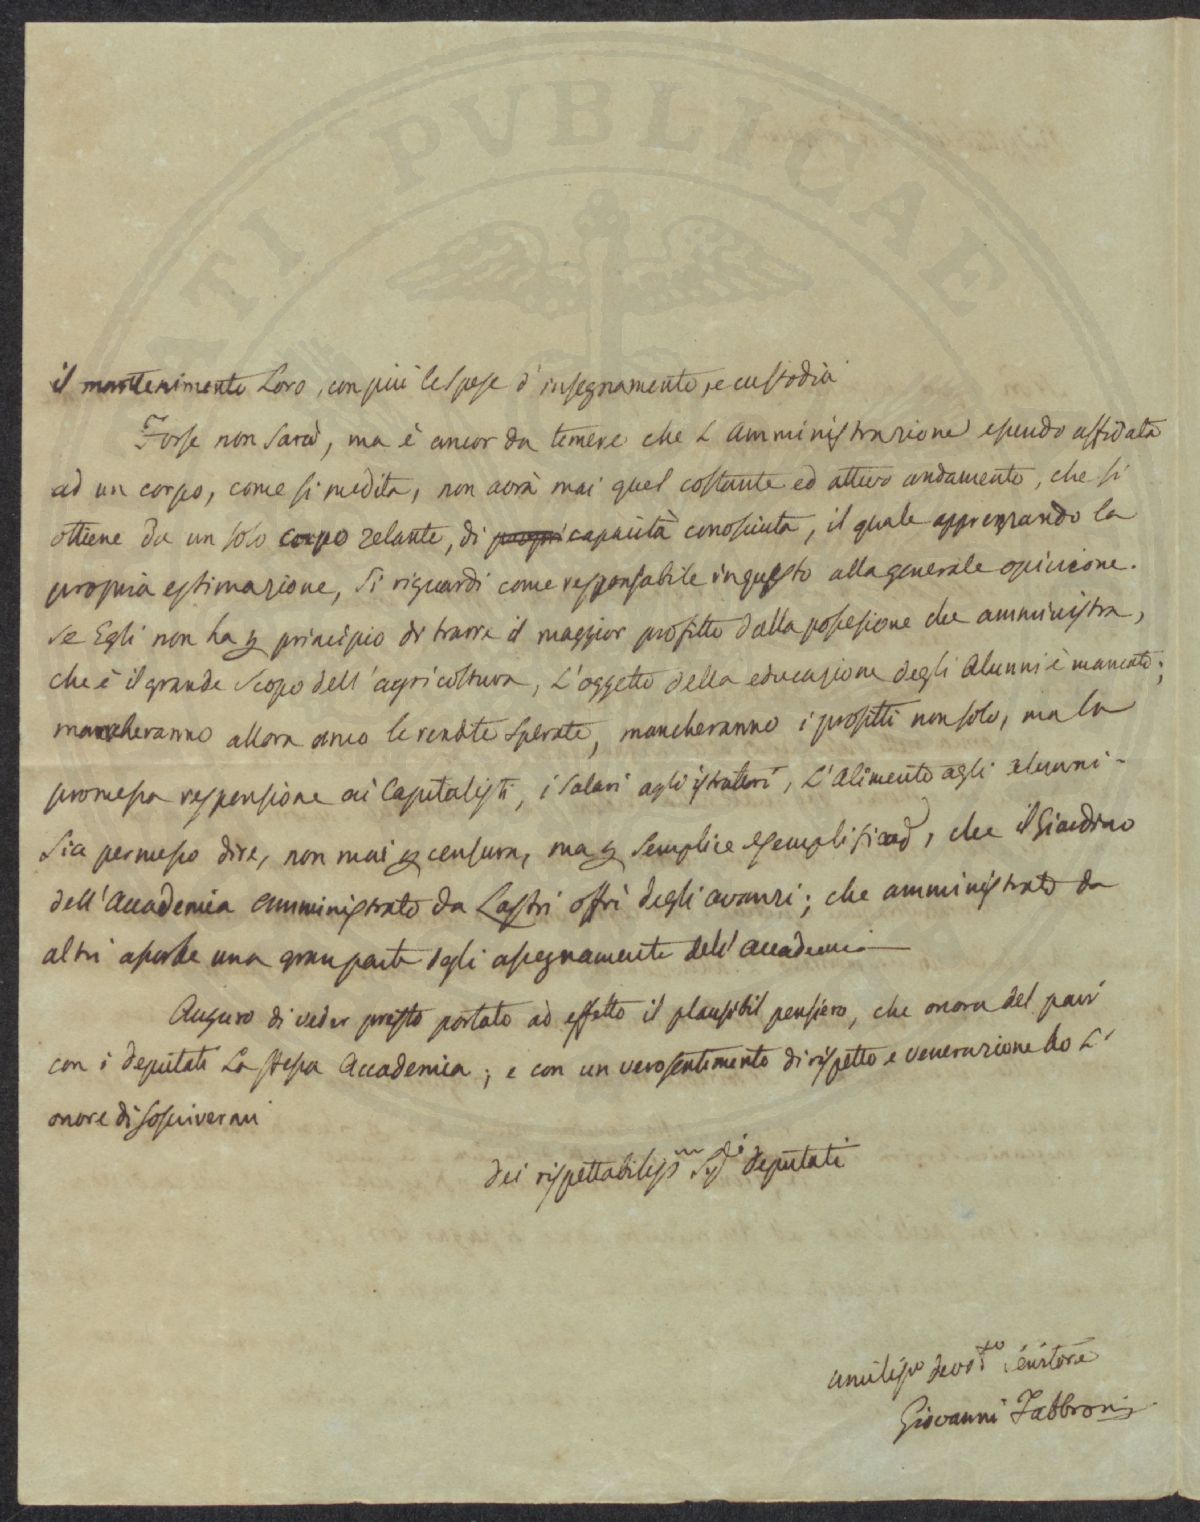 il mantenimento Loro, con più le Spese d'insegnamento, e custodia
Forse non Sarà, ma è ancor da temere che L'Amministrazione essendo affidata
ad un corpo, come si medita, non avrà mai quel costante ed attivo andamento, che si
ottiene da un solo corpo zelante, di capacità conosciuta, il quale apprezzando la
propria estimazione, Si riguardi come responsabile in questo alla generale opinione.
Se Egli non ha p principio di trarre il maggior profitto dalla possessione che amministra,
che è il grande Scopo dell'agricoltura, L'oggetto della educazione degli Alunni è mancato;
mancheranno allora anco le rendite Sperate, mancheranno i profitti non solo, ma la
promessa respensione ai Capitalisti, i Salari agli istruttori, L'Alimento agli alunni -
Sia permesso dire, non mai p censura, ma p Semplice esemplificaz, che il Giardino
dell'Accademia amministrato da Lastri offrì degli avanzi; che amministrato da
altri assorbe una gran parte degli assegnamenti dell'Accademia
Auguro di veder presto portato ad effetto il plausibil pensiero, che onora del pari
con i deputati La stessa Accademia; e con un vero sentimento di rispetto e venerazione ho L'
onore di soscrivermi
dei rispettabiliss mi Sig ri deputati
umiliss o devot mo Servitore
Giovanni Fabbroni
ATI PVBLICAE